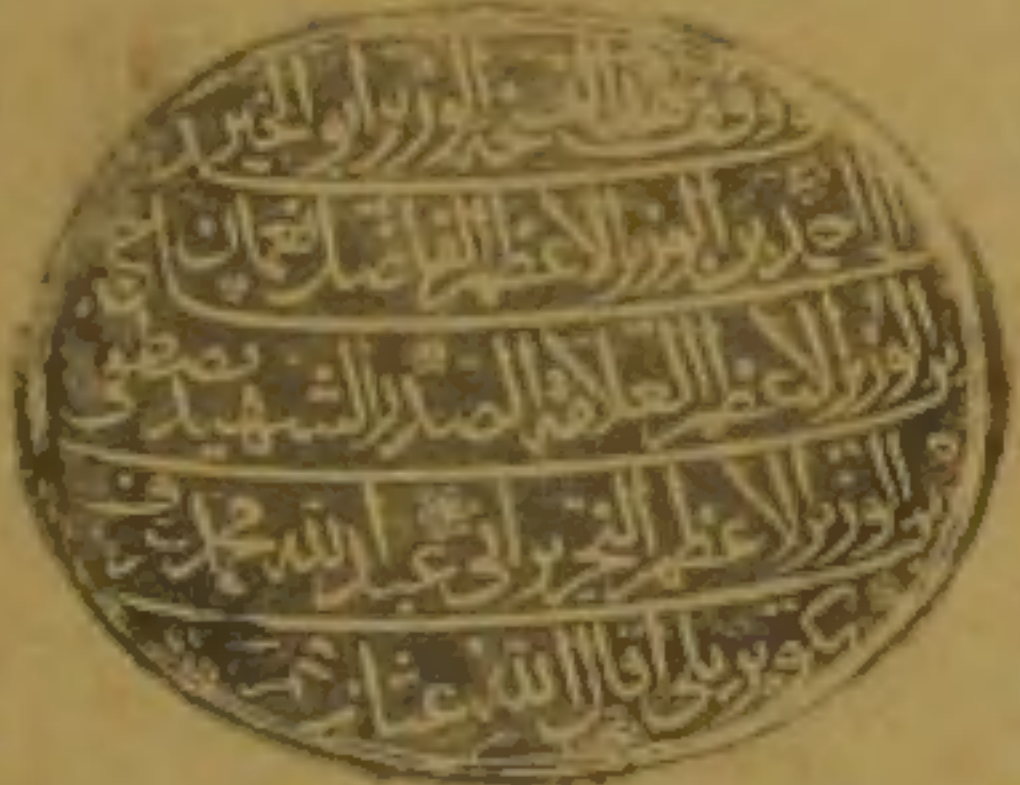 وقف هذا الوزير ابو الخير
احمد بن الوزير الاعظم الفاضل نعمان
بن الوزير الاعظم العلامة الصدر الشهيد مصطفى
بن الوزير الاعظم النحرير ابي عبد الله محمد عرف
بكوپريلى اقال الله عثارهم